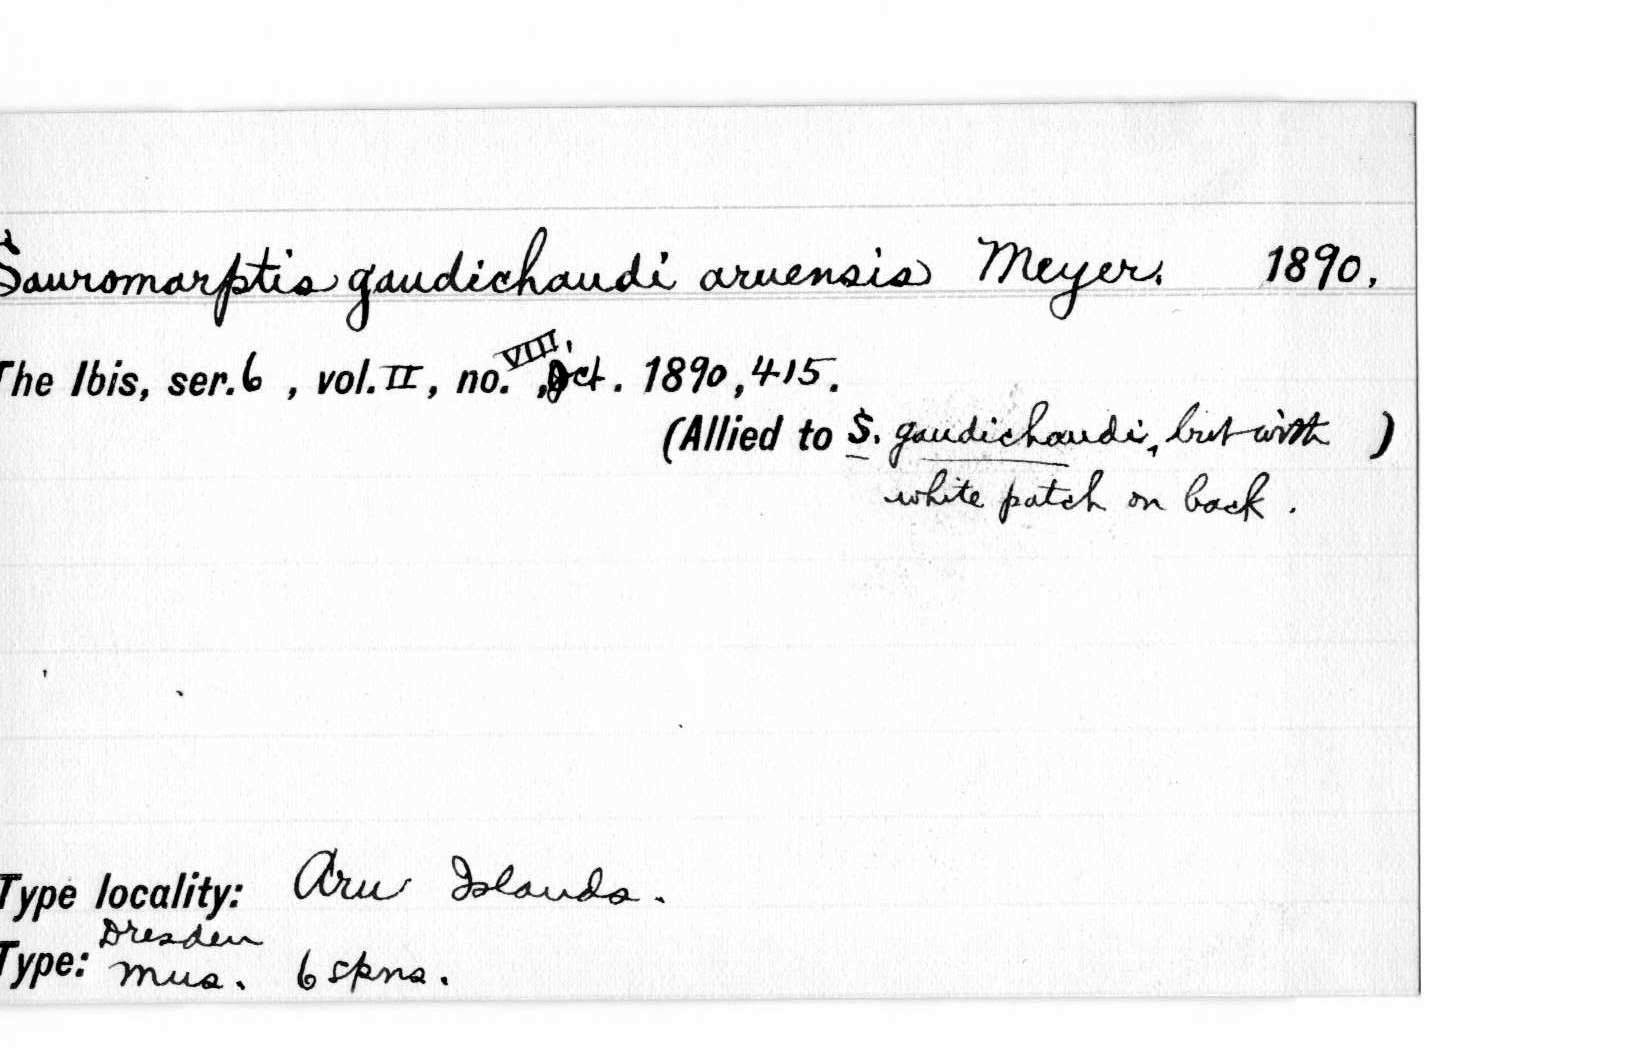 Sauromarptis gaudichaudi aruensis Meyer. 1890.
The Ibis, ser.6 , vol.II, no.VIII, Oct. 1890, 415.
(Allied to S. gaudichaudi, but with )
white patch on back.
Type locality: Aru Islands.
Type: Dresden Mus. 6 spns.